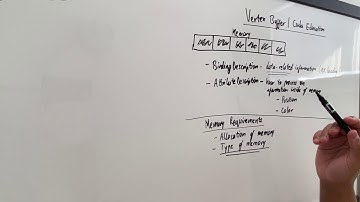 Vertex Buffer | Code Education
Memory
- Binding Description - data-related information
- Attribute Description - how to process the
information inside of memory
- Position
- Color
Memory Requirements
- Allocation of memory
- Type of memory